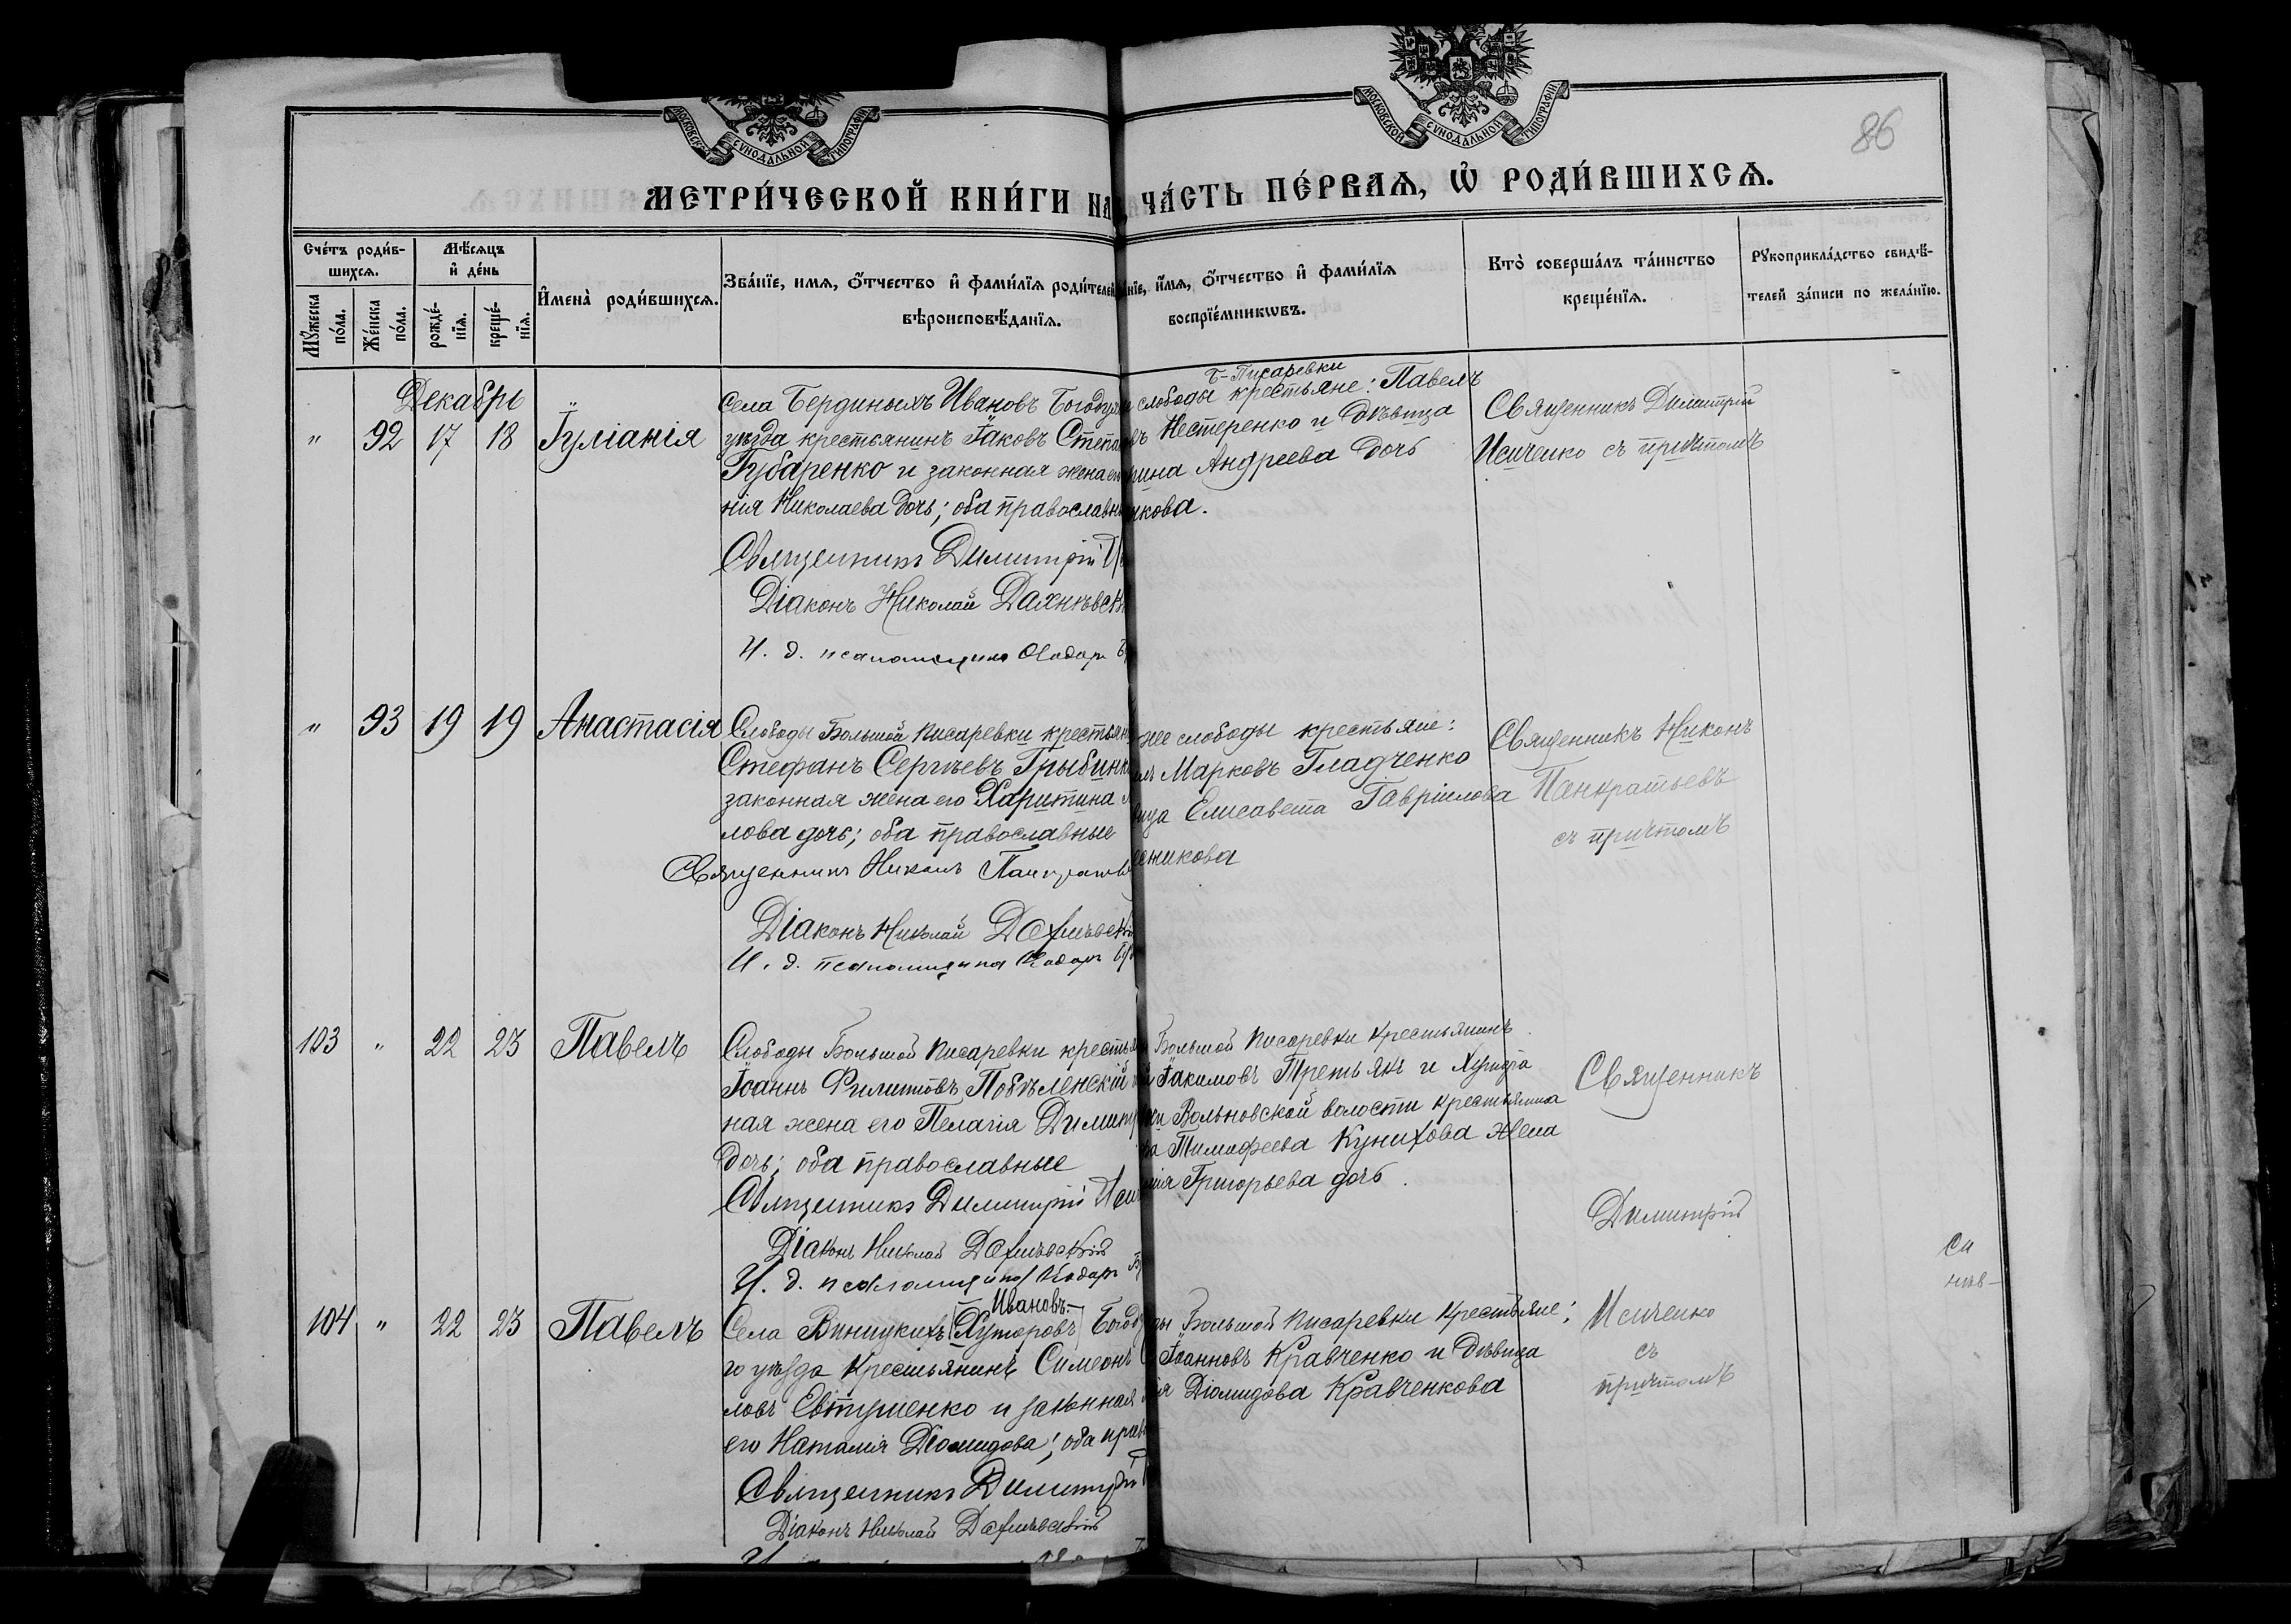 МОСКОВСКОЙ СУНОДАЛЬНОЙ ТИПОГРАФІИ
МОСКОВСКОЙ СУНОДАЛЬНОЙ ТИПОГРАФІИ
86
МЕТРИ́ЧЕСКОЙ КНИ́ГИ НА
ЧА́СТЬ ПЕ́РВАѦ, Ѡ҆ РОДИ́ВШИХСѦ.
Сче́тъ роди́в-
шихсѧ.
Мꙋ́жеска по́ла.
Же́нска по́ла.
Мѣ́сѧцъ
и҆ де́нь
рожде́-
нїѧ.
креще́-
нїѧ.
И҆мена̀ роди́вшихсѧ.
Зва́нїе, имѧ, ѻ҆́тчество и҆ фами́лїѧ роди́телей
вѣроисповѣ́данїѧ.
нїе, и҆́мѧ, ѻ҆́тчество и҆ фами́лїѧ
воспрїе́мникѡвъ.
Кто̀ соверша́лъ та́инство
креще́нїѧ.
Рꙋкоприкла́дство свидѣ́-
телей за́писи по жела́нїю.
Декабрь
" 92 17 18 Іуліанія
Села Бердиныхъ Ивановъ Богодух
уѣзда крестьянинъ Іаковъ Степа
Губаренко и законная жена его
нія Николаева дочь; оба православн
Священникъ Димитрій И
Діаконъ Николай Дахнѣвск
И. д. псаломщика
Б-Писаревки
слободы крестьяне: Павелъ
въ Нестеренко и дѣвица
рина Андреева дочь
нкова.
Священникъ Димитрій
Исиченко съ причтомъ
" 93 19 19 Анастасія
Слободы Большой Писаревки крестьян
Стефанъ Сергѣевъ Грыбинк
законная жена его Харитина
лова дочь; оба православные
Священникъ Никонъ Панкратьев
Діаконъ Николай Дахнѣвскі
И. д. псаломщика
же слободы крестьяне:
Марковъ Гладченко
ица Елисавета Гавріилова
сникова
Священникъ Никонъ
Панкратьевъ
съ причтомъ
103 " 22 23 Павелъ
Слободы Большой Писаревки крестья
Іоаннъ Филиповъ Побѣленскій
ная жена его Пелагія Димитр
дочь; оба православные
Священникъ Димитрій Иси
Діаконъ Николай Дахнѣвскій
И. д. псаломщика
Большой Писаревки крестьянинъ
Іакимовъ Третьякъ и Хутора
Вольновской волости крестьянина
Тимофеева Кунихова жена
Григорьева дочь.
Священникъ
Димитрій
104 " 22 23 Павелъ
Ивановъ
Села Виницкихъ (Хуторовъ) Богод
го уѣзда крестьянинъ Симеонъ
ловъ Евтушенко и законная
его Наталія Діомидова; оба прав
Священникъ Димитрій
Діаконъ Николай Дахнѣвскій
Большой Писаревки крестьяне:
Іоанновъ Кравченко и дѣвица
Діомидова Кравченкова
Исиченко
съ
причтомъ